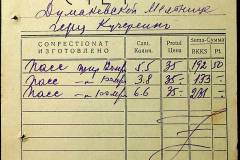 Думановской Мельнице
герц Кучеренко
CONFECTIONAT
ИЗГОТОВЛЕНО
Cant.
Колич.
Prețul
Цена
Suma-Сумма
RKKS
Pf.
Пасс 5.5 35 192 50
Пасс 3.8 35 133 -
Пасс 6.6 35 231 -